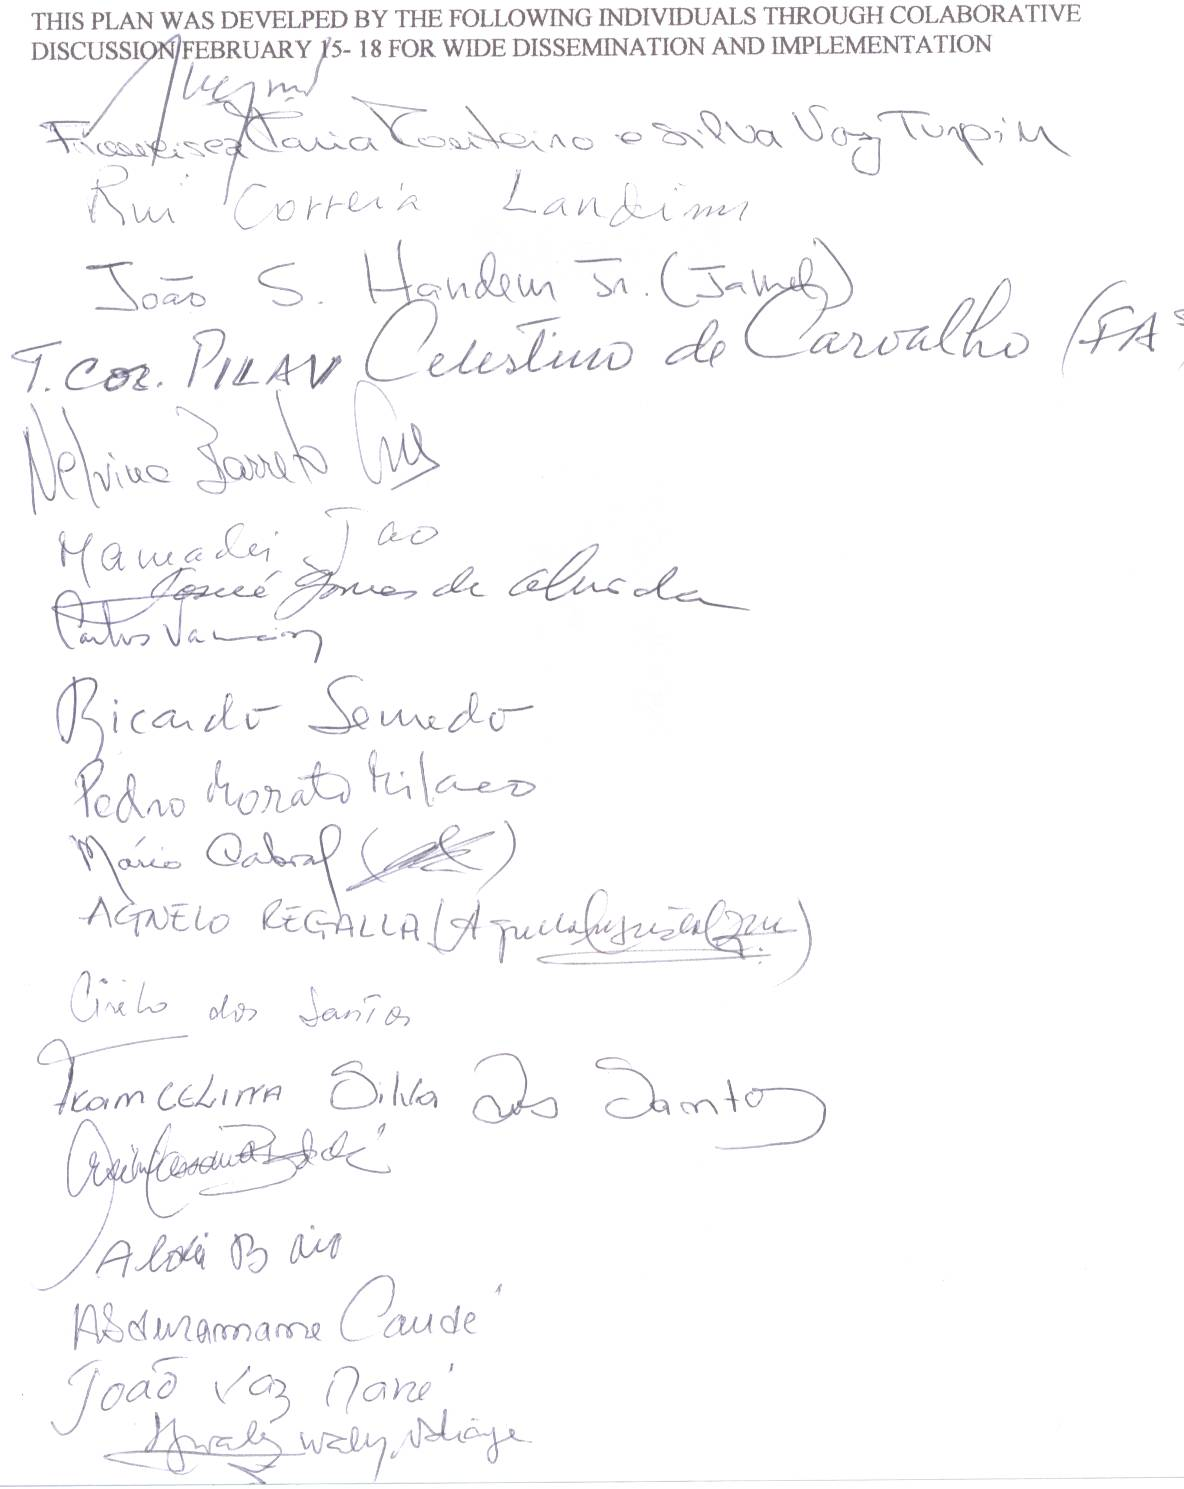 THIS PLAN WAS DEVELPED BY THE FOLLOWING INDIVIDUALS THROUGH COLABORATIVE
DISCUSSION FEBRUARY 15- 18 FOR WIDE DISSEMINATION AND IMPLEMENTATION
Francisca Maria Monteiro e Silva Vaz Turpin
Rui Correia Landim
João S. Handem Jr. (Jamel)
T. COR. PILAV Celestino de Carvalho (FA
Nelvina Barreto
Mamadu Jao
Josué Gomes de Almeida
Carlos
Ricardo Semedo
Pedro Morato Milaco
Mário Cabral
AGNELO REGALLA
Cirilo dos Santos
FRANCELINA Silva Dos Santos
Abduramane
João Vaz Mané
Waly Ndiaye